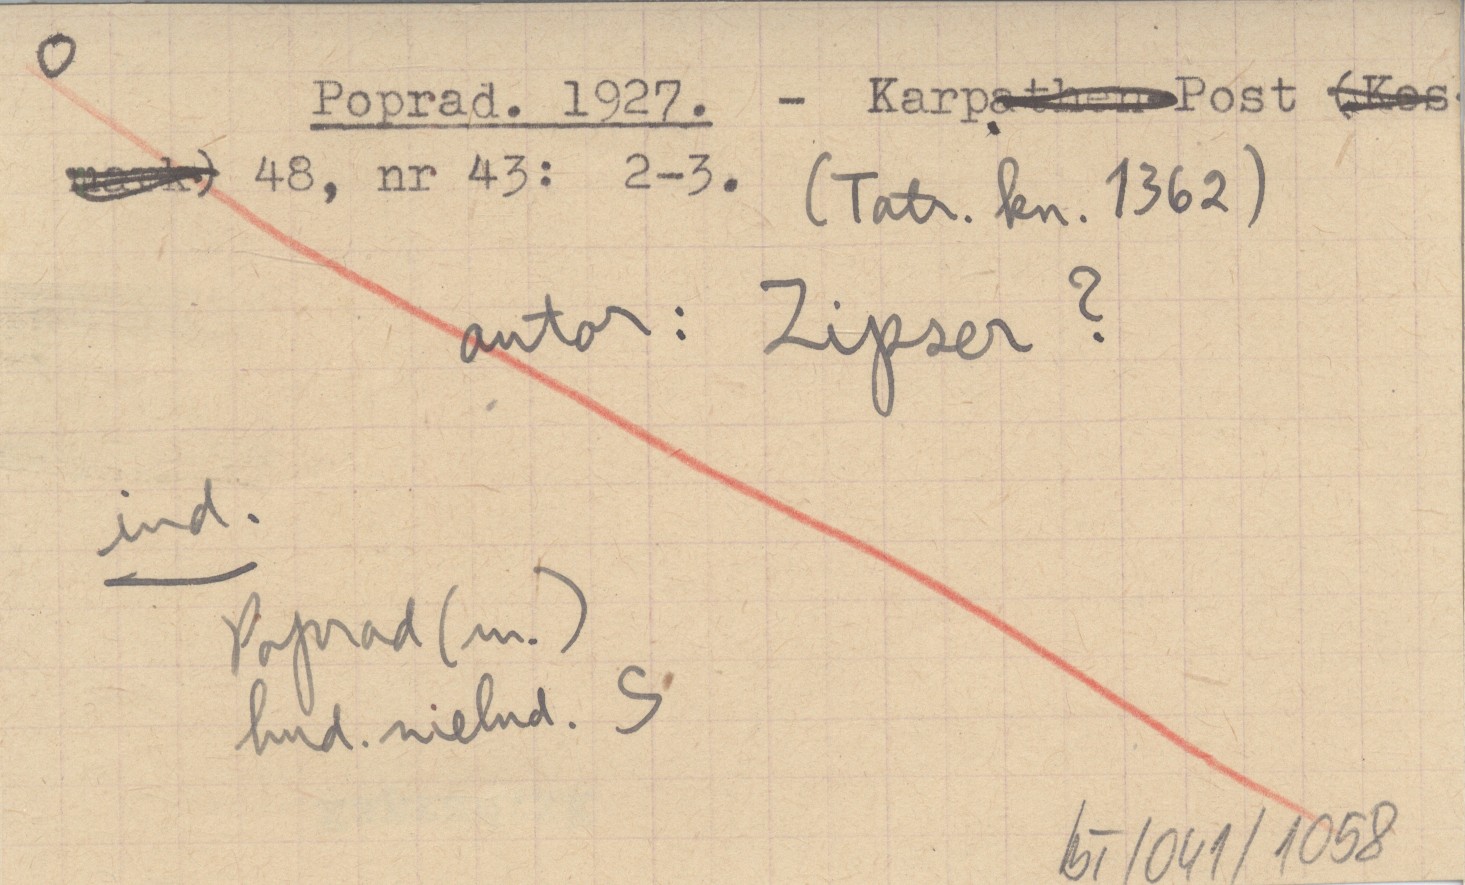 O
Poprad. 1927. - Karpathen Post (Kes-
mark) 48, nr 43: 2-3. (Tatr. kn. 1362)
autor: Zipser ?
ind.
Poprad (m.)
bud. nielud. S
bT/041/1058